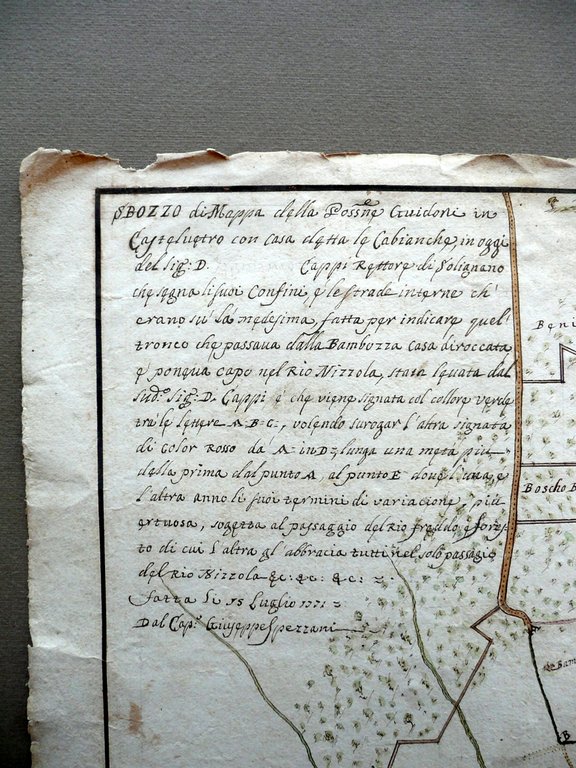 SBOZZO di Mappa della Possne Guidoni in
Castelvetro con casa detta le Cabianche, in oggi
del sig: D. Cappi Rettore di Solignano
che segna li suoi Confini e le strade interne ch'
erano sù la medesima, fatta per indicare quel'
tronco che passava dalla Bambozza casa diroccata
e poneva capo nel Rio Nizzola, stata levata dal
sud: sig: D. Cappi e che viene signata col collore verde
tra le lettere A B C, volendo surogar l'altra signata
di Color Rosso da A in D lunga una metà più
della prima dal punto A, al punto E dove l'una, e
l'altra anno li suoi termini di variacione, più
ertuosa, sogetta al passaggio del Rio freddo e
to di cui l'altra gl'abbracia tutti nel solo passagio
del Rio Nizzola &c: &c: &c: ~
fatta Li 15 Luglio 1771 ~
Dal Cap: Giuseppe Spezzani
Beni
Boscho B
Bam
B